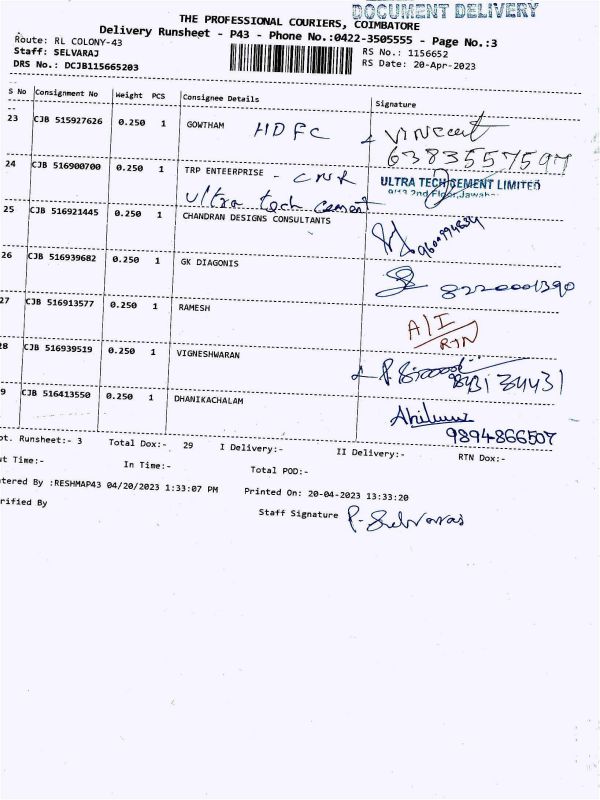 DOCUMENT DELIVERY
THE PROFESSIONAL COURIERS, COIMBATORE
Delivery Runsheet - P43 - Phone No.:0422-3505555 - Page No.:3
Route: RL COLONY-43
RS No.: 1156652
Staff: SELVARAJ
RS Date: 20-Apr-2023
DRS No.: DCJB115665203
S No Consignment No Weight PCS Consignee Details Signature
23 CJB 515927626 0.250 1 GOWTHAM HDFC Vincent
6383557597
24 CJB 516900700 0.250 1 TRP ENTEERPRISE - CNR ULTRA TECH CEMENT LIMITED
2nd Floor, Jawahar
Ultra tech cement
25 CJB 516921445 0.250 1 CHANDRAN DESIGNS CONSULTANTS
26 CJB 516939682 0.250 1 GK DIAGONIS 8220001390
27 CJB 516913577 0.250 1 RAMESH A/I
RTN
28 CJB 516939519 0.250 1 VIGNESHWARAN
9 CJB 516413550 0.250 1 DHANIKACHALAM
9894866507
ot. Runsheet:- 3 Total Dox:- 29 I Delivery:- II Delivery:- RTN Dox:-
ut Time:- In Time:- Total POD:-
tered By :RESHMAP43 04/20/2023 1:33:07 PM Printed On: 20-04-2023 13:33:20
rified By Staff Signature P. Selvaraj